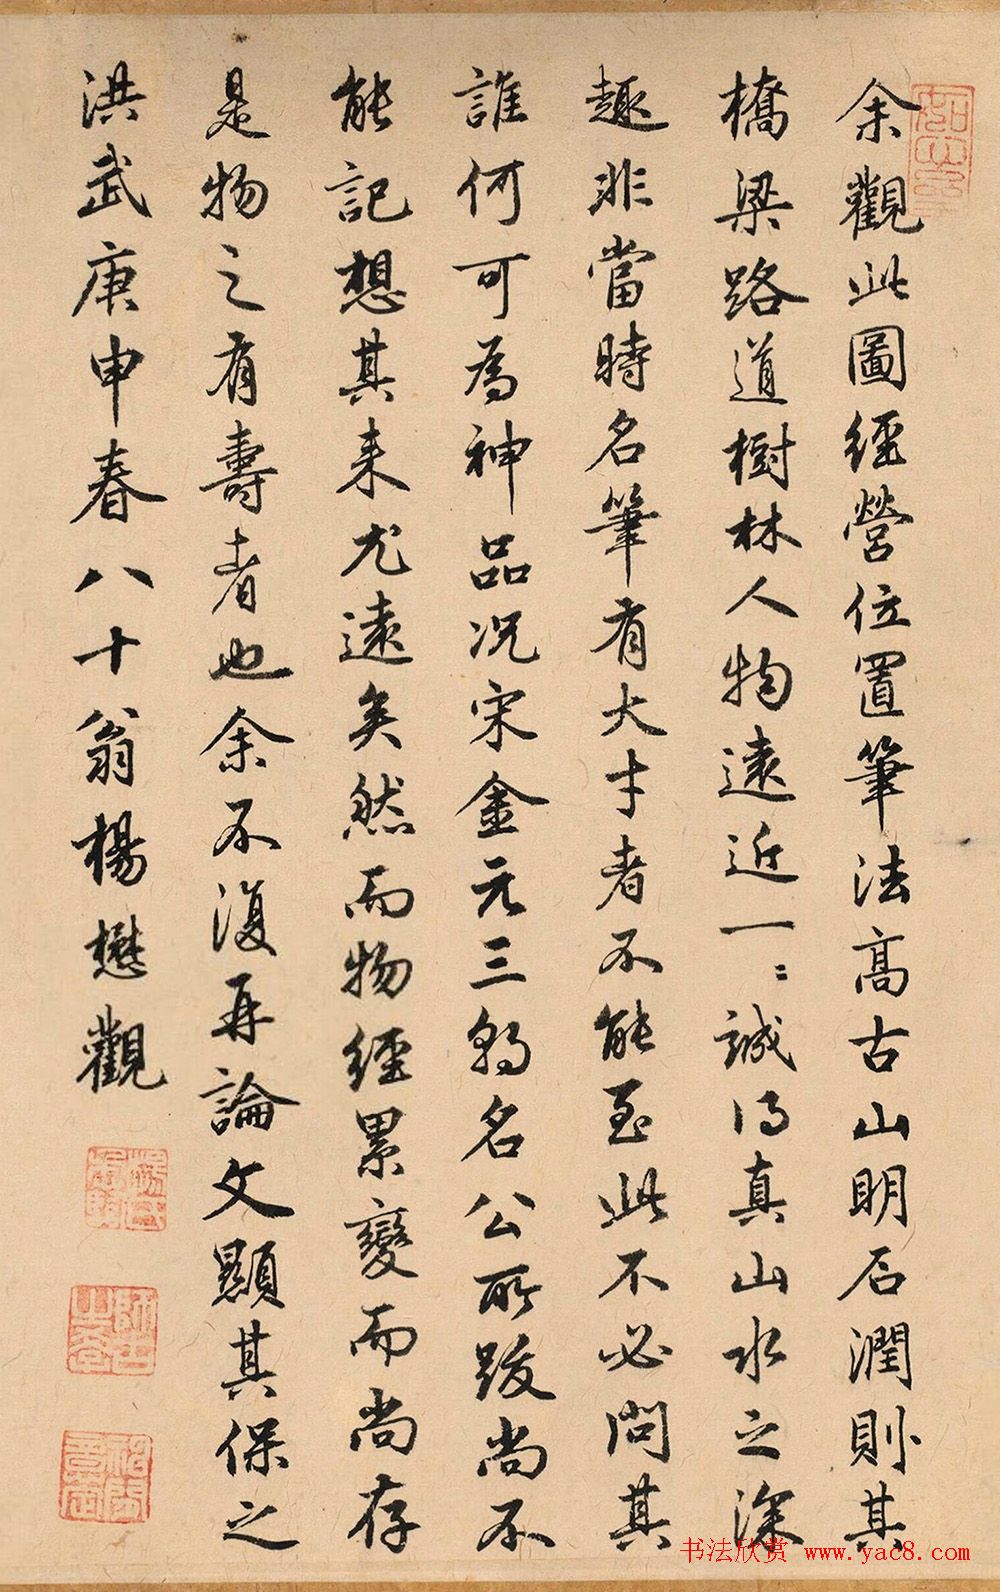 余觀此圖經營位置筆法高古山明石潤則其
橋梁路道樹林人物遠近一〻誠得真山水之深
趣非當時名筆有大才者不能至此不必問其
誰何可為神品况宋金元三朝名公所跋尚不
能記想其来尤遠矣然而物經累變而尚存
是物之有壽者也余不復再論文顯其保之
洪武庚申春八十翁楊懋觀
书法欣赏 www.yac8.com